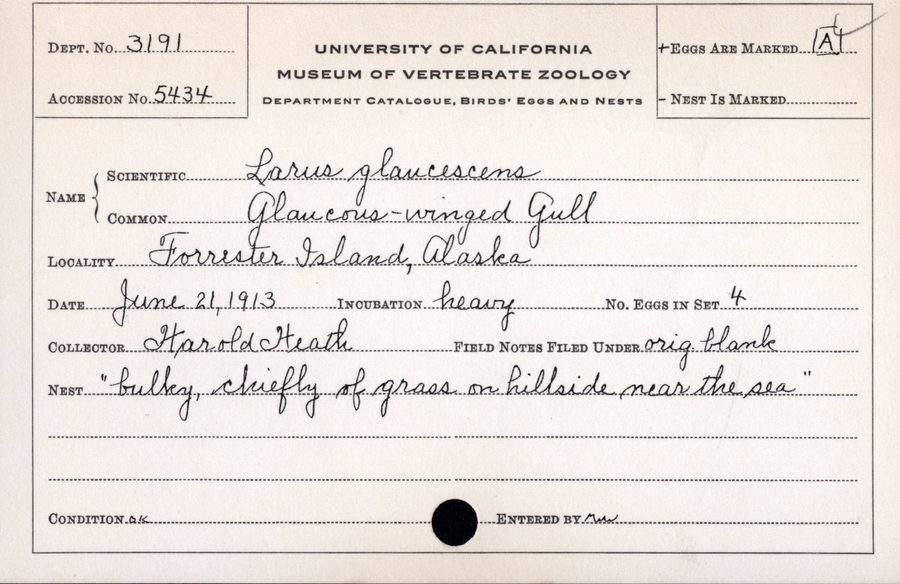 DEPT. NO. 3191
ACCESSION NO. 5434
UNIVERSITY OF CALIFORNIA
MUSEUM OF VERTEBRATE ZOOLOGY
DEPARTMENT CATALOGUE, BIRDS' EGGS AND NESTS
+ EGGS ARE MARKED A/4
- NEST IS MARKED
NAME
SCIENTIFIC Larus glaucescens
COMMON Glaucous-winged Gull
LOCALITY Forrester Island, Alaska
DATE June 21, 1913 INCUBATION heavy NO. EGGS IN SET 4
COLLECTOR Harold Heath FIELD NOTES FILED UNDER orig. blank
NEST "bulky, chiefly of grass on hillside near the sea"
CONDITION OK ENTERED BY